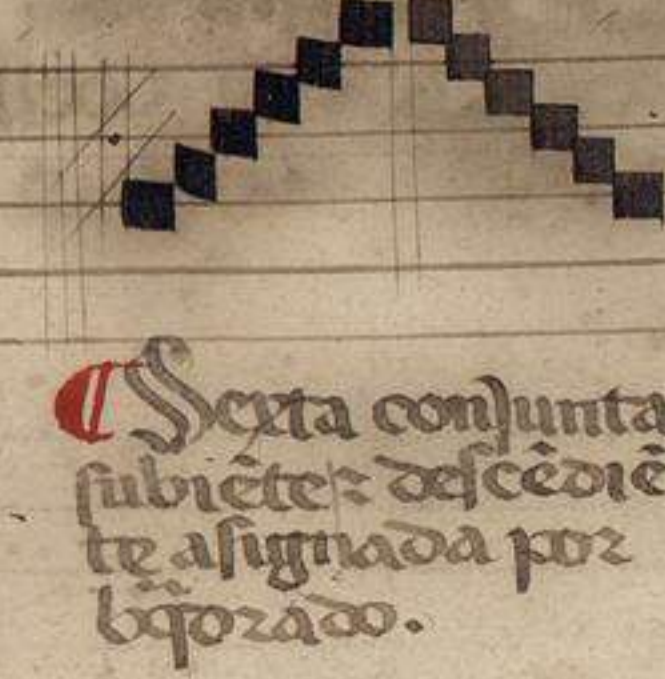 ¶ Sexta conjunta
subiẽte ⁊ descẽdiẽ
te asignada por
bq̃drado.